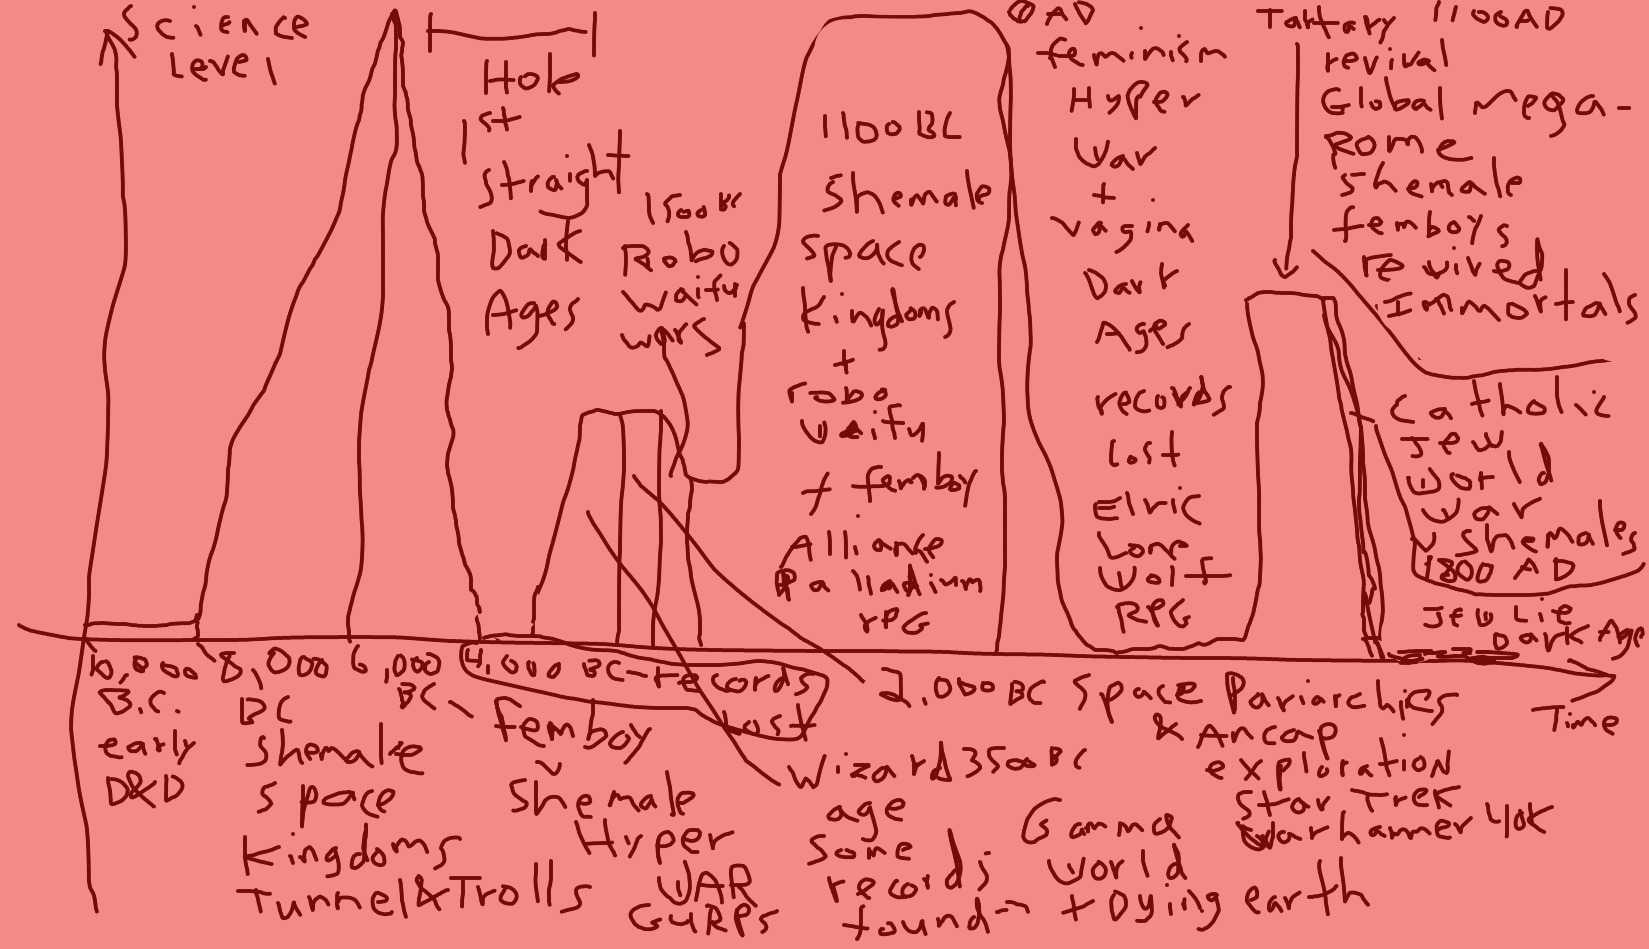 Science
Level
Hole
1st
Straight
Dark
Ages
1500 BC
Robo
Waifu
wars
1100 BC
Shemale
Space
Kingdoms
+
robo
Waifu
+ femboy
Alliance
Palladium
RPG
0 AD
feminism
Hyper
War
+
vagina
Dark
Ages
records
lost
Elric
Lone
Wolf
RPG
Tartary 1100 AD
revival
Global Mega-
Rome
Shemale
femboys
revived
Immortals
Catholic
Jew
World
War
v Shemales
1800 AD
Jew Lie
Dark Age
Time
10,000
B.C.
early
D&D
8,000
BC
Shemale
Space
Kingdoms
Tunnel&Trolls
6,000
BC -
femboy
v
Shemale
Hyper
WAR
GURPS
4,000 BC - records
lost
Wizard 3500 BC
age
Some
records
found -
2,000 BC Space Pariarchies
& Ancap
exploration
Star Trek
Warhammer 40K
Gamma
World
+ Dying earth